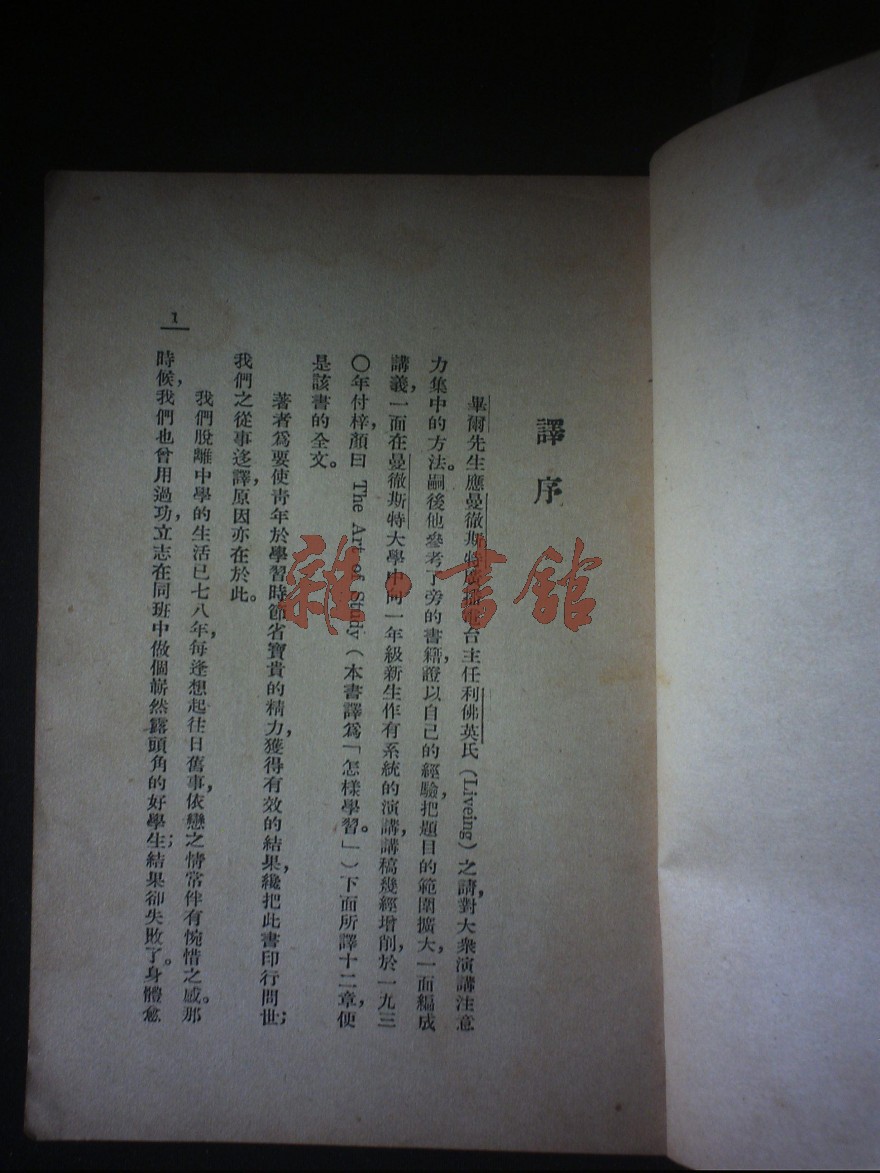 譯序
畢爾先生應曼徹斯特播電台主任利佛英氏（Liveing）之請，對大衆演講注意
力集中的方法。嗣後他參考了旁的書籍，證以自己的經驗，把題目的範圍擴大，一面編成
講義，一面在曼徹斯特大學中向一年級新生作有系統的演講，講稿幾經增削，於一九三
〇年付梓，顏曰 The Art of Study（本書譯爲「怎樣學習。」）下面所譯十二章，便
是該書的全文。
著者爲要使青年於學習時節省寶貴的精力，獲得有效的結果，纔把此書印行問世；
我們之從事迻譯，原因亦在於此。
我們脫離中學的生活已七八年，每逢想起往日舊事，依戀之情常伴有惋惜之感。那
時候，我們也曾用過功，立志在同班中做個嶄然露頭角的好學生；結果卻失敗了。身體愈
1
雜·書館